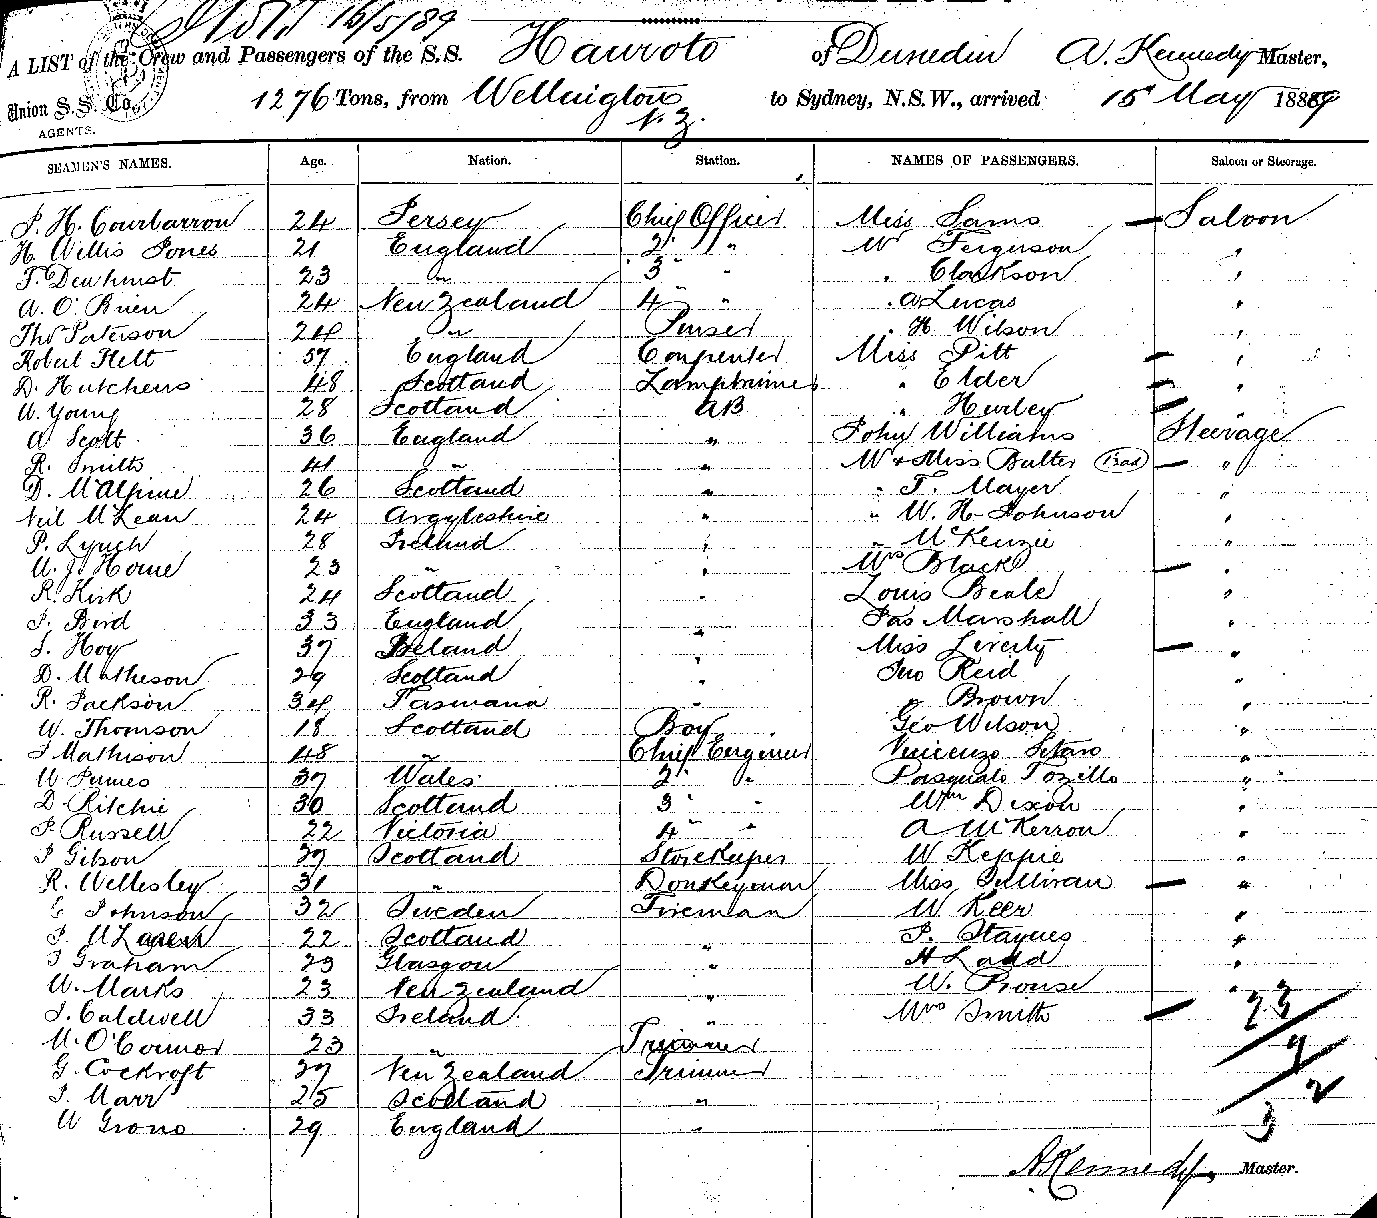 16/5/89
A LIST of the Crew and Passengers of the S.S. Hauroto of Dunedin A. Kennedy Master,
Union S.S. Co. 1276 Tons, from Wellington N.Z. to Sydney, N.S.W., arrived 15 May 1889
AGENTS.
SEAMEN'S NAMES. Age. Nation. Station. NAMES OF PASSENGERS. Saloon or Steerage.
P. H. Courbarron 24 Jersey Chief Officer Miss Sams Saloon
H. Willis Jones 21 England 2 " Mr Ferguson "
T. Dewhurst 23 " 3 " " Clarkson "
A. O'Brien 24 New Zealand 4 " " A Lucas "
Thos Paterson 24 " Purser " H Wilson "
Robert Helt 57 England Carpenter Miss Pitt "
D. Hutchens 48 Scotland Lamptrimmer " Elder "
W. Young 28 Scotland AB " Hurley "
A Scott 36 England " John Williams Steerage
R. Smith 41 " " Mr & Miss Butler "
D. McAlpine 26 Scotland " " T. Mayer "
Neil McLean 24 Argyleshire " " W. H. Johnson "
P. Lynch 28 Ireland " " McKenzie "
W. J. Horne 23 " " Mrs Black "
R. Kirk 24 Scotland " Louis Beale "
J. Bird 33 England Jas Marshall "
J. Hoy 37 Ireland " Miss "
D. Matheson 29 Scotland " Jno Reid "
R. Jackson 34 Tasmania " " Brown "
W. Thomson 18 Scotland Boy Geo Wilson "
J Mathison 48 " Chief Engineer Vincenzo "
W James 37 Wales 2 " Pasquale "
D Ritchie 30 Scotland 3 " Wm Dixon "
J. Russell 22 Victoria 4 " A McKerron "
J Gibson 27 Scotland Storekeeper W Keppie "
R. Wellesley 31 " Donkeyman Miss Sullivan "
C Johnson 32 Sweden Fireman W Keer "
J. McLaren 22 Scotland " P. Staynes "
J Graham 23 Glasgow " H Ladd "
W. Marks 23 New Zealand " W. Prouse "
J. Caldwell 33 Ireland " Mrs Smith 23
M. O'Connor 23 " Trimmer 9
G. Cockroft 27 New Zealand Trimmer
J. Marr 25 Scotland " 2
W Grono 29 England " 3
A. Kennedy Master.